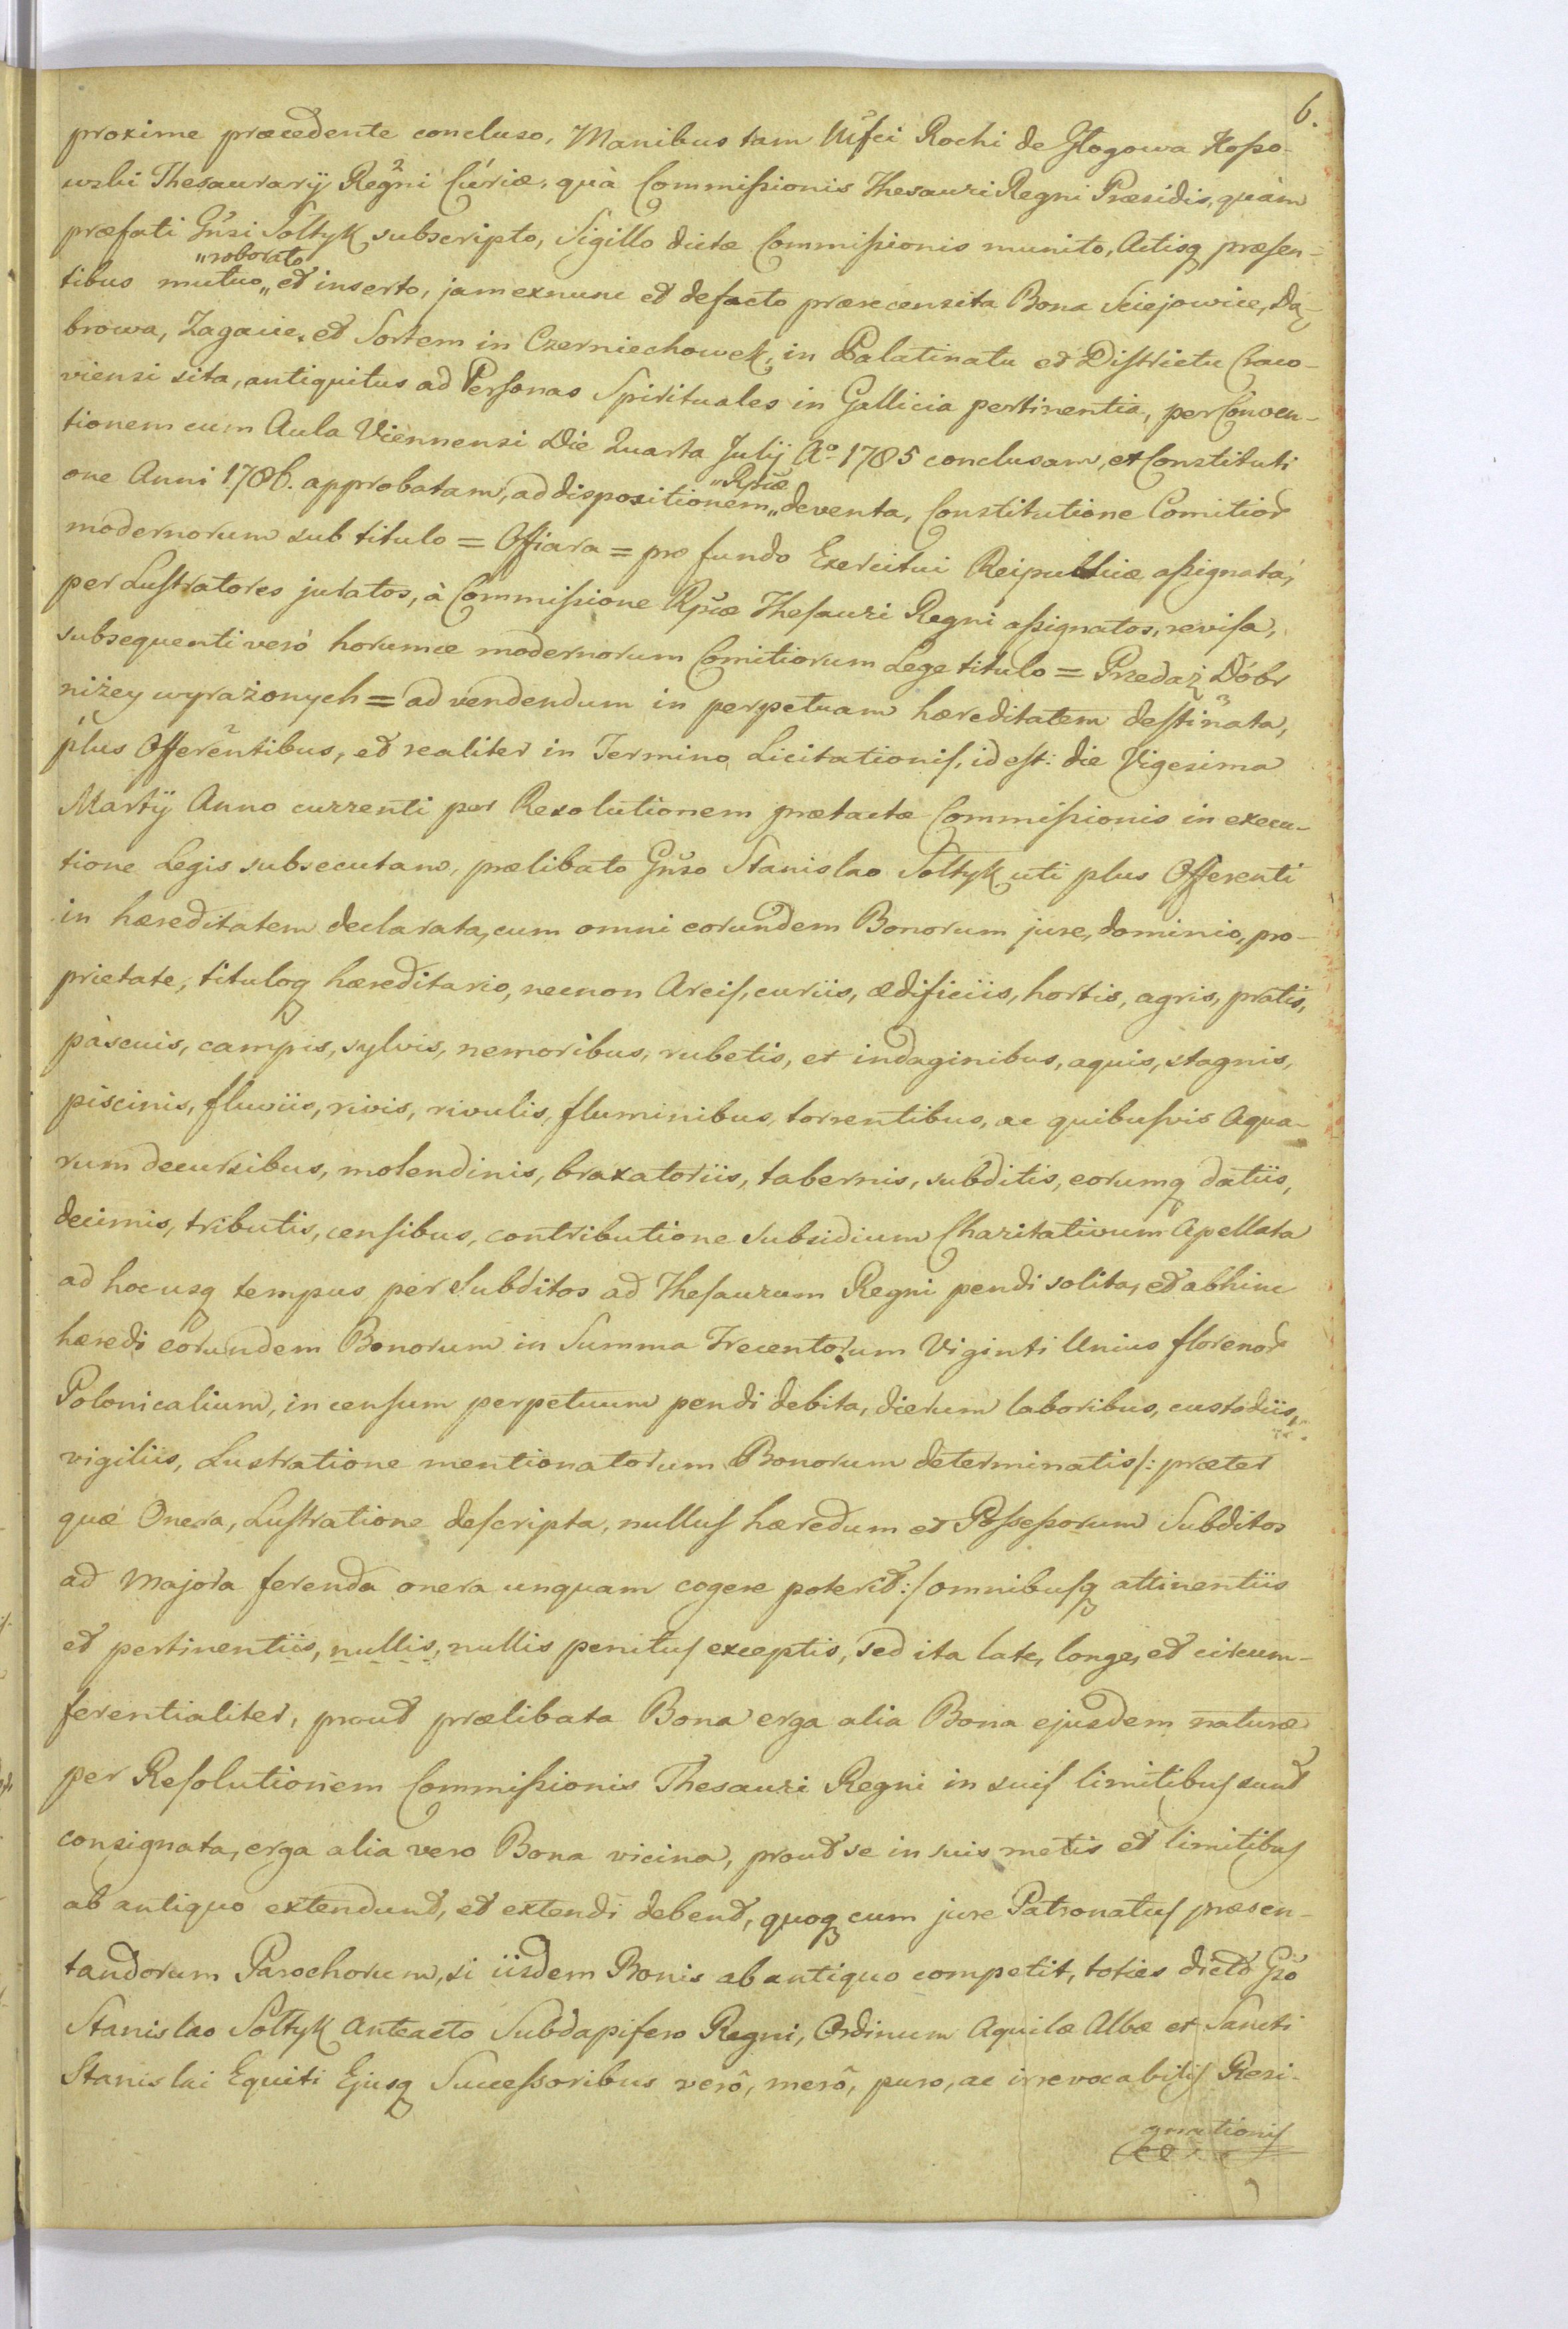 6.
proxime præcedente concluso, Manibus tam Mĩfci Rochi de Głogowa Kosso-
wski Thesaurarÿ Regni Curiæ, quà Commissionis Thesauri Regni Præsidis, quàm
præfati Gñsi Sołtyk subscripto, Sigillo dictæ Commissionis munito, Actisq præsen-
„roborato
tibus mutuo „ et inserto, jam exnunc et defacto præscensita Bona Sciejowice, Dą-
browa, Zagacie, et Sortem in Czerniechowek, in Palatinatu et Districtu Craco-
viensi sita, antiquitus ad Personas Spirituales in Gallicia pertinentia, per Conven-
tionem cum Aula Viennensi Die Quarta Julÿ Aº 1785 conclusam, et Constituti
„Rpcæ
one Anni 1786. approbatam, ad dispositionem „ deventa, Constitutione Comitior
modernorum sub titulo = Offiara = pro fundo Exercitui Reipublicæ assignata,
per Lustratores juratos, à Commissione Rpcæ Thesauri Regni assignatos, revisa,
subsequenti verò horumce modernorum Comitiorum Lege titulo = Przedaż Dóbr
niżey wyrażonych = ad vendendum in perpetuam hæreditatem destinata,
plus Offerentibus, et realiter in Termino Licitationis, id est: die Vigesima
Martÿ Anno currenti per Resolutionem prætactæ Commissionis in execu-
tione Legis subsecutam, prælibato Gñso Stanislao Sołtyk uti plus Offerenti
in hæreditatem declarata, cum omni eorundem Bonorum jure, dominio, pro-
prietate, tituloq hæreditario, necnon Arcis, curiis, ædificiis, hortis, agris, pratis,
pàscuis, campis, sylvis, nemoribus, rubetis, et indaginibus, aquis, stagnis,
piscinis, fluviis, rivis, rivulis, fluminibus, torrentibus, ac quibusvis Aqua-
rum decursibus, molendinis, braxatoriis, tabernis, subditis, eorumq datiis,
decimis, tributis, censibus, contributione Subsidium Charitativum Apellata
ad hocusq tempus per Subditos ad Thesaurum Regni pendi solita, et abhinc
hæredi eorundem Bonorum in Summa Trecentorum Viginti Unius florenor
Polonicalium, in censum perpetuum pendi debita, dierum laboribus, custodiis,
vigiliis, Lustratione mentionatorum Bonorum determinatis /: præter
quæ Onera, Lustratione descripta, nullus hæredum et Possessorum Subditos
ad Majora ferenda onera unquam cogere poterit :/ omnibusq attinentiis
et pertinentiis, nullis, nullis penitus exceptis, sed ita late, longe, et circum-
ferentialiter, prout prælibata Bona erga alia Bona ejusdem naturæ
per Resolutionem Commissionis Thesauri Regni in suis limitibus sunt
consignata, erga alia vero Bona vicina, prout se in suis metis et limitibus
ab antiquo extendunt, et extendi debent, quoq cum jure Patronatus præsen-
tandorum Parochorum, si iisdem Bonis ab antiquo competit, toties dicto Gso
Stanislao Sołtyk Anteacto Subdapifero Regni, Ordinum Aquilæ Albæ et Sancti
Stanislai Equiti Ejusq Successoribus verô, merô, puro, ac irrevocabilis Resi-
gnationis